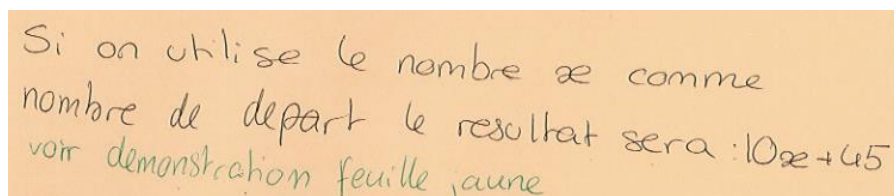 Si on utilise le nombre x comme
nombre de depart le resultat sera : 10x + 45
voir demonstration feuille jaune